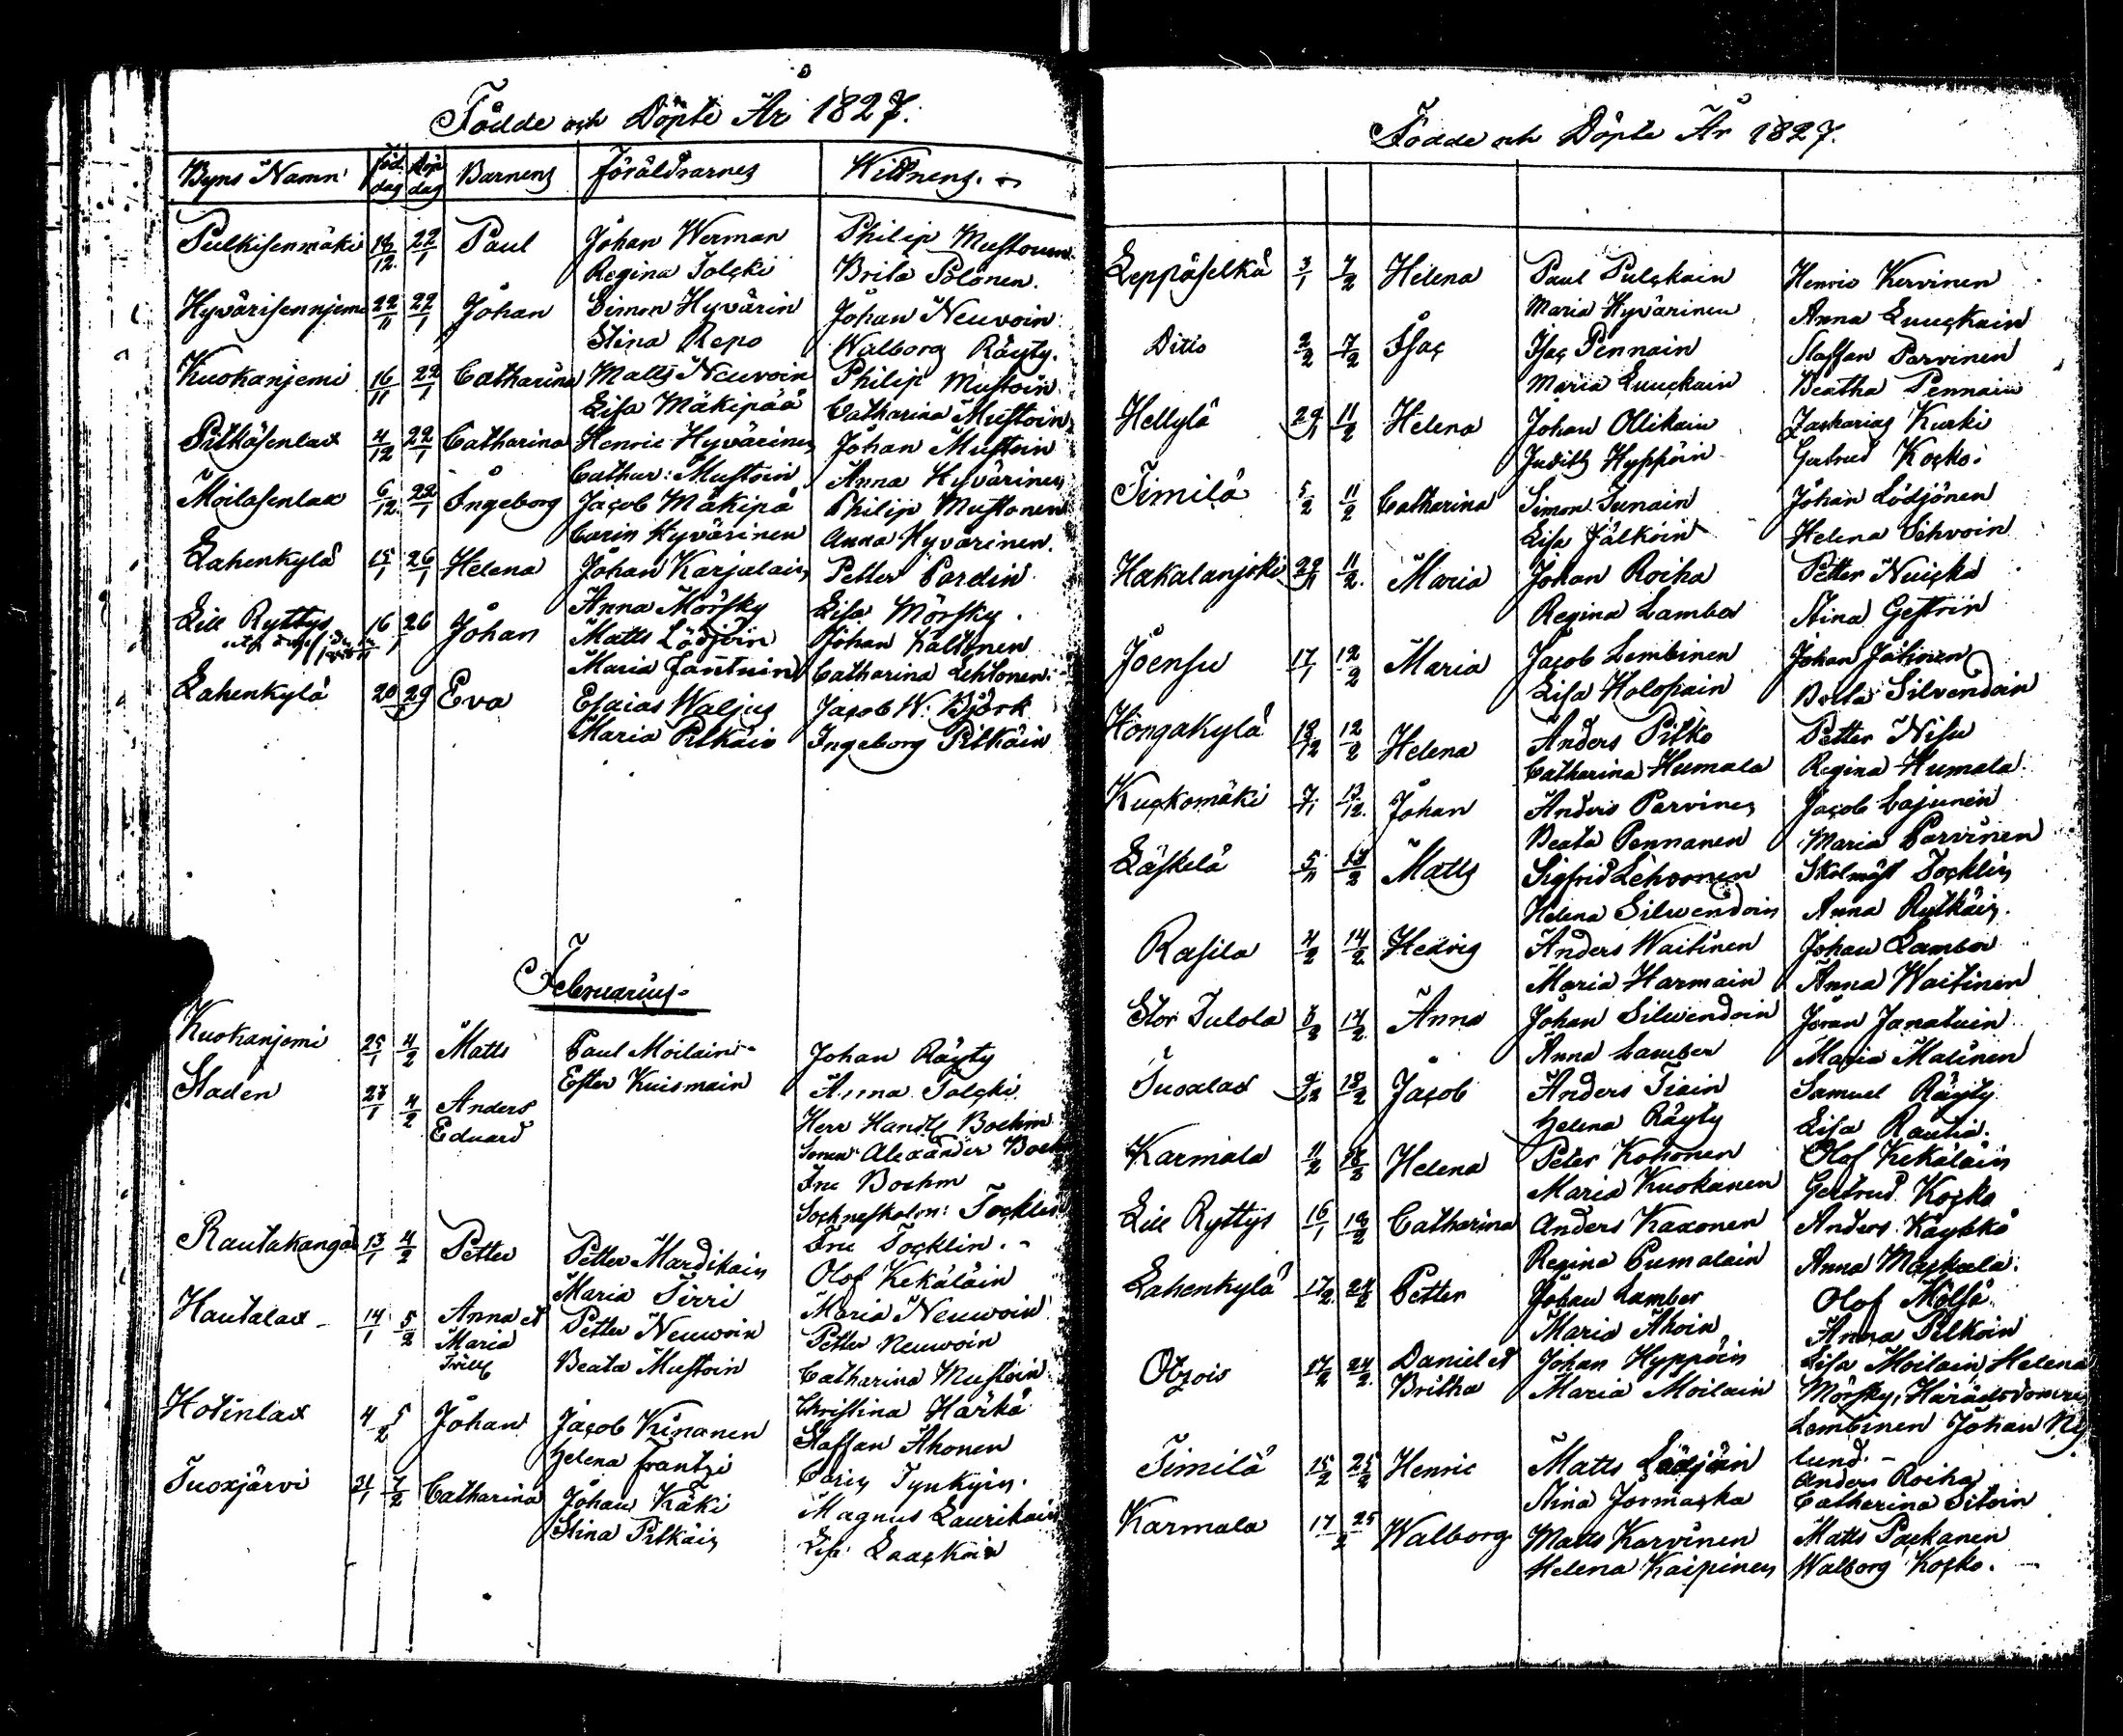 Födde och Döpte År 1827.
Byns Namn Föd. dag Döp dag Barnens Föräldrarnes Wittnens.
Pulkisenmäki 18/12. 22/1 Paul Johan Werman Philip Mustonen
Regina Tolcki Brita Polonen.
Hyvärisennjemi 22/11 22/1 Johan Simon Hyvärin Johan Neuvoin
Stina Repo Walborg Räyty.
Kuokanjemi 16/11 22/1 Catharina Matts Neuvoin Philip Mustoin
Lisa Mäkipää Catharina Mustoin
Pitkäsenlax 4/12 22/1 Catharina Henric Hyvärinen Johan Mustoin
Cathar: Mustoin Anna Hyvärinen
Moilasenlax 6/12 22/1 Ingeborg Jacob Mäkipä Philip Mustonen
Carin Hyvärinen Anna Hyvärinen.
Lahenkylä 15/1 26/1 Helena Johan Karjalain Petter Pardin
Anna Mörsky Lisa Mörsky.
Lill Ryttys 16 26/1 Johan Matts Lödjöin Johan Kaltonen
Maria Jantuin Catharina Lehtonen.
Lahenkylä 20 29/1 Eva Esaias Waljus Jacob W. Björk
Maria Pitkäin Ingeborg Pitkäin
Februarius.
Kuokanjemi 25/1 4/2 Matts Paul Moilain Johan Räyty
Ester Kuismain Anna Tolcki
Staden 23/1 4/2 Anders Herr Handl Boehm
Eduard Alexander Boehm
Fru Boehm
Socknescolm: Tocklin
Fru Tocklin.
Rautakangas 13/1 4/2 Petter Petter Mardikain Olof Kekäläin
Maria Tirri Maria Neuwoin
Hautalax 14/1 5/2 Anna et Petter Neuwoin Petter Neuwoin
Maria Beata Mustoin Catharina Mustoin
Trill
Christina Härkä
Hotinlax 4/2 5 Johan Jacob Kinanen Staffan Ahonen
Helena Frantzi Carin Tynkyin.
Tuoxjärvi 31/1 7/2 Catharina Johan Käki Magnus Laurikain
Stina Pitkäin Lisa Laackoin
Födde och Döpte År 1827.
Leppäselkä 3/1 7/2 Helena Paul Pulckain Henric Kervinen
Maria Hyvärinen Anna Luuckain
Ditto 2/2 7/2 Isac Isac Pennain Staffan Parvinen
Maria Luuckain Beatha Pennain
Hellylä 29/1 11/2 Helena Johan Ollikain Zacharias Kurki
Judith Hyppöin Gertrud Kocko.
Timilä 5/2 11/2 Catharina Simon Tunain Johan Lödjönen
Lisa Jälköin Helena Sihvoin
Hakalanjoki 29/11 11/2. Maria Johan Roiha Petter Nuicka
Regina Lamber Stina Gestrin
Joensu 17/1 12/2 Maria Jacob Lembinen Johan Jätinen
Lisa Holopain Brita Silvendoin
Hongakylä 18/12 12/2 Helena Anders Pitko Petter Nisu
Catharina Humala Regina Humala
Kuckomäki 7/1 13/12. Johan Anders Parvinen Jacob Lajunen
Beata Pennanen Maria Parvinen
Läskelä 5/11 13/2 Matts Sigfrid Lehvonen Skolmäst Tocklin
Helena Silwendoin Anna Rytkäin.
Rasila 4/2 14/2 Hedvig Anders Waitinen Johan Lamber
Maria Harmain Anna Waitinen
Stor Tulola 8/2 14/2. Anna Johan Silwendoin Jöran Janatuin
Anna Lamber Maria Matinen
Tuoxlax 9/2 18/2 Jacob Anders Tiain Samuel Räyty
Helena Räyty Lisa Rautia.
Karmala 11/2 18/2 Helena Peter Kohonen Olof Kekäläin
Maria Kuokanen Gertrud Kocko
Lill Ryttys 16/1 18/2 Catharina Anders Kaxonen Anders Käykkö
Regina Pumalain Anna Maskala.
Lahenkylä 17/2. 24/2 Petter Johan Lamber Olof Mölsä
Maria Ahoin Anna Pelkoin
Otzois 17/2 24/2. Daniel et Johan Hyppöin Lisa Moilain, Helena
Britha Maria Moilain Mörsky, Häradsdomren
Lembinen Johan Ny
lund.
Timilä 15/2 25/2 Henric Matts Lödjöin Anders Roiha
Stina Jormacka Catharina Sitoin
Karmala 17 25/2 Walborg Matts Karvinen Matts Packanen
Helena Kaipinen Walborg Kocko.